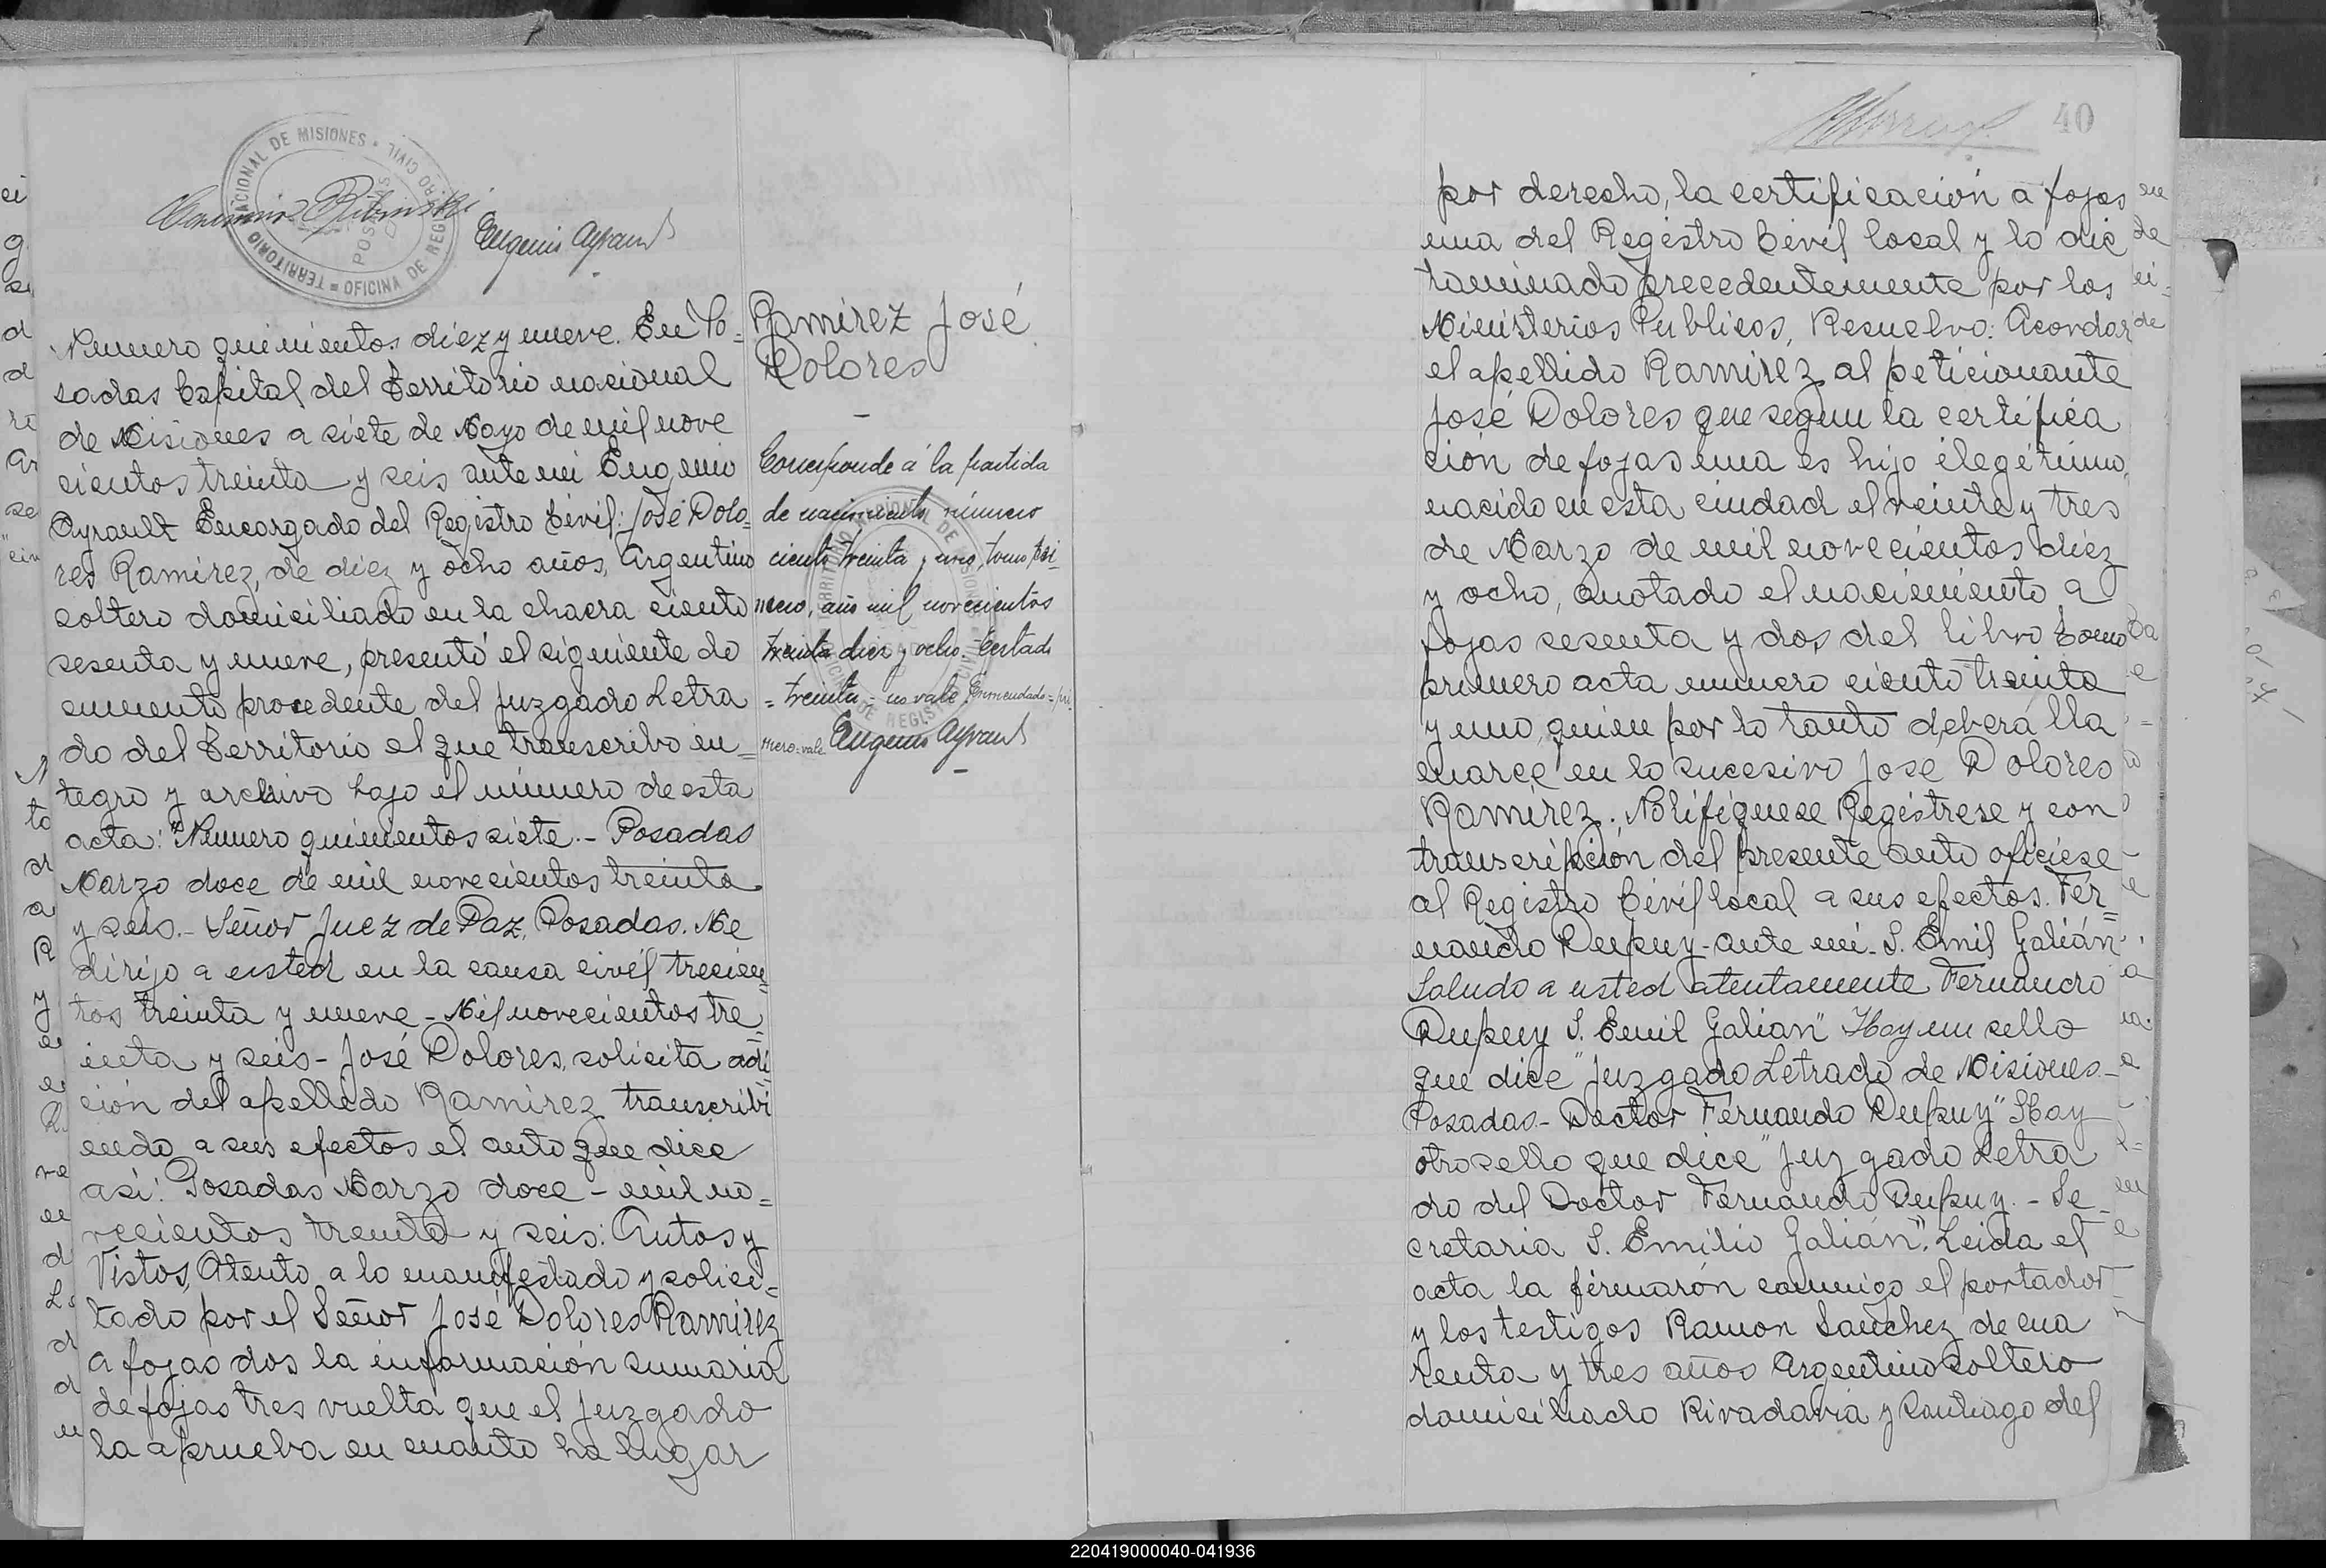 TERRITORIO NACIONAL DE MISIONES
OFICINA DE REGISTRO CIVIL
POSADAS
Eugenio Ayrault
Numero quinientos diez y nueve. En Po-
sadas Capital del Territorio nacional
de Misiones a siete de Mayo de mil nove
cientos treinta y seis ante mi Eugenio
Ayrault Encargado del Registro Civil: José Dolo-
res Ramírez, de diez y ocho años, Argentino
soltero domiciliado en la chacra ciento
sesenta y nueve, presentó el siguiente do
cumento procedente del Juzgado Letra
do del Territorio el que transcribo in-
tegro y archivo bajo el número de esta
acta: "Numero quinientos siete.- Posadas
Marzo doce de mil novecientos treinta
y seis.- Señor Juez de Paz, Posadas. Me
dirijo a usted en la causa civil trecien-
tos treinta y nueve - Mil novecientos tre
inta y seis - José Dolores, solicita adi
ción del apellido Ramirez transcribi
endo a sus efectos el auto que dice
así: Posadas Marzo doce - mil no-
vecientos treinta y seis: Autos y
Vistos, Atento a lo manifestado y solici-
tado por el Señor José Dolores Ramirez
a fojas dos la información sumaria
de fojas tres vuelta que el Juzgado
la aprueba en cuanto ha lugar
Ramírez José
Dolores
Corresponde á la partida
de nacimiento número
ciento treinta y uno, tomo pri-
mero, año mil novecientos
treinta diez y ocho - Testado
= treinta = no vale. Enmendado = pri
mero = vale Eugenio Ayrault
40
por derecho, la certificación a fojas
una del Registro Civil local y lo dic
taminado precedentemente por los
Ministerios Publicos, Resuelvo: Acordar
el apellido Ramirez al peticionante
José Dolores que segun la certifica
ción de fojas una es hijo ilegítimo,
nacido en esta ciudad el veinte y tres
de Marzo de mil novecientos diez
y ocho, anotado el nacimiento a
fojas sesenta y dos del libro tomo
primero acta numero ciento treinta
y uno, quien por lo tanto deberá lla
marce en lo sucesivo José Dolores
Ramírez. Notifíquese Regístrese y con
transcripción del presente auto oficiese
al Registro Civil local a sus efectos. Fer-
nando Dupuy - ante mi - S. Emil Galián
Saludo a usted atentamente Fernando
Dupuy S. Emil Galian" Hay un sello
que dice "Juzgado Letrado de Misiones -
Posadas - Doctor Fernando Dupuy" Hay
otro sello que dice "Juzgado Letra
do del Doctor Fernando Dupuy. - Se-
cretaria S. Emilio Galián". Leida el
acta la firmarón conmigo el portador
y los testigos Ramon Sanchez de cua
renta y tres años Argentino soltero
domiciliado Rivadavia y Santiago del
220419000040-041936